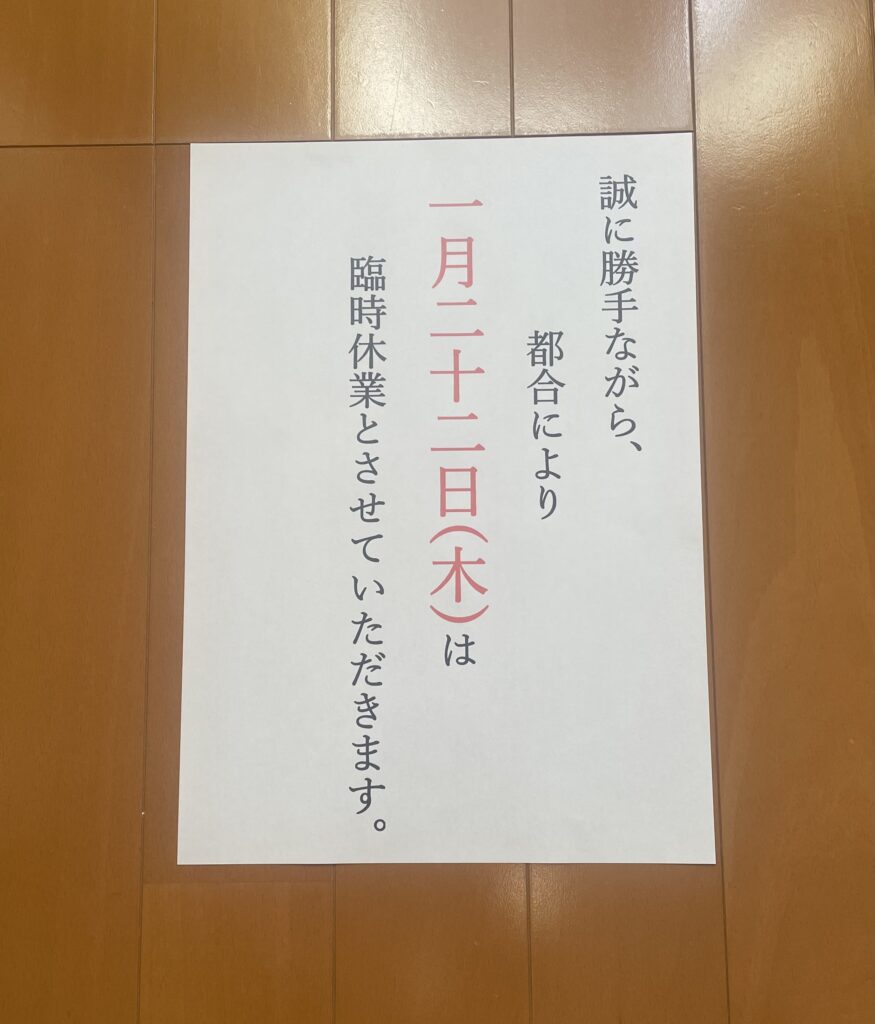 誠に勝手ながら、
都合により
一月二十二日(木)は
臨時休業とさせていただきます。